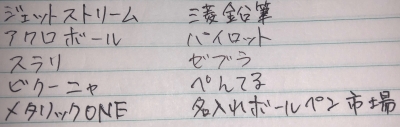 ジェットストリーム 三菱鉛筆
アクロボール パイロット
スラリ ゼブラ
ビクーニャ ぺんてる
メタリックONE 名入れボールペン市場